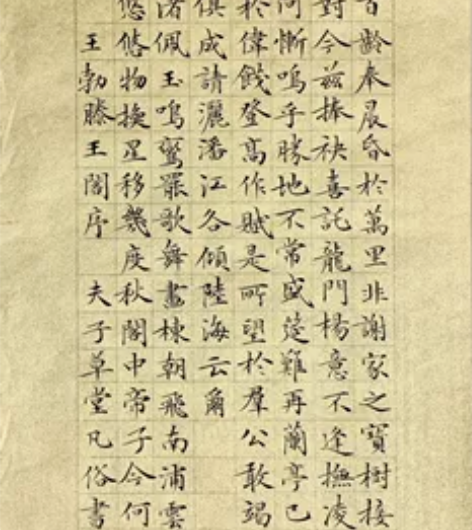 百齡奉晨昏於萬里非謝家之寶樹接
對今茲捧袂喜託龍門楊意不逢撫凌
何慚嗚乎勝地不常盛筵難再蘭亭已
於偉餞登高作賦是所望於羣公敢竭
俱成請灑潘江各傾陸海云爾
渚佩玉鳴鸞罷歌舞畫棟朝飛南浦雲
悠悠物換星移幾度秋閣中帝子今何
王勃滕王閣序 夫子草堂凡俗書